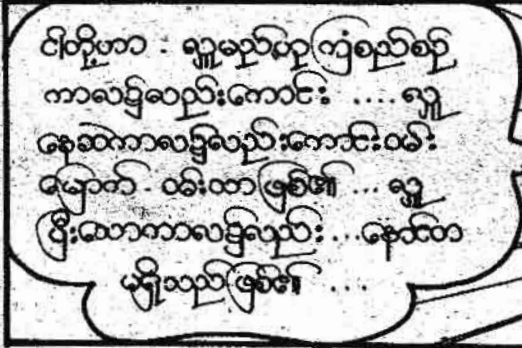 ငါတို့ဟာ - လှူမည်ဟုကြံစည်စဉ်
ကာလ၌လည်းကောင်း .... လှူ
နေဆဲကာလ၌လည်းကောင်းဝမ်း
မြောက် - ဝမ်းသာဖြစ်၏ ... လှူ
ပြီးသောကာလ၌လည်း ... နောင်တ
မရှိသည်ဖြစ်၏ ...